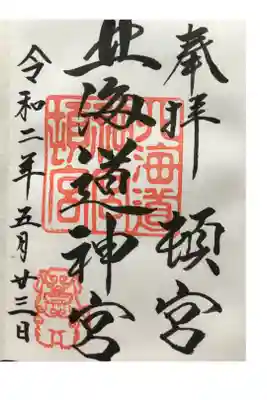 奉拝 頓宮
北海道神宮
令和二年五月廿三日
北海道神宮頓宮